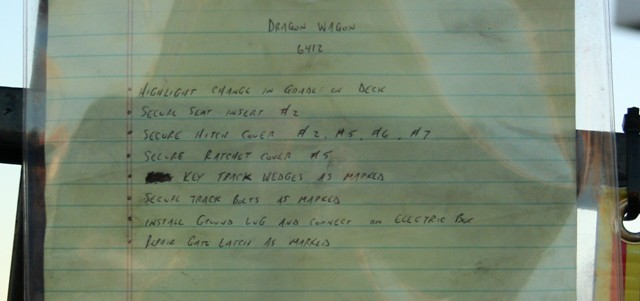 DRAGON WAGON
6412
• HIGHLIGHT CHANGE IN GRADE ON DECK
• SECURE SEAT INSERT #2
• SECURE HITCH COVER #2, #5, #6, #7
• SECURE RATCHET COVER #5
• KEY TRACK WEDGES AS MARKED
• SECURE TRACK BOLTS AS MARKED
• INSTALL GROUND LUG AND CONNECT ON ELECTRIC BOX
• REPAIR GATE LATCH AS MARKED